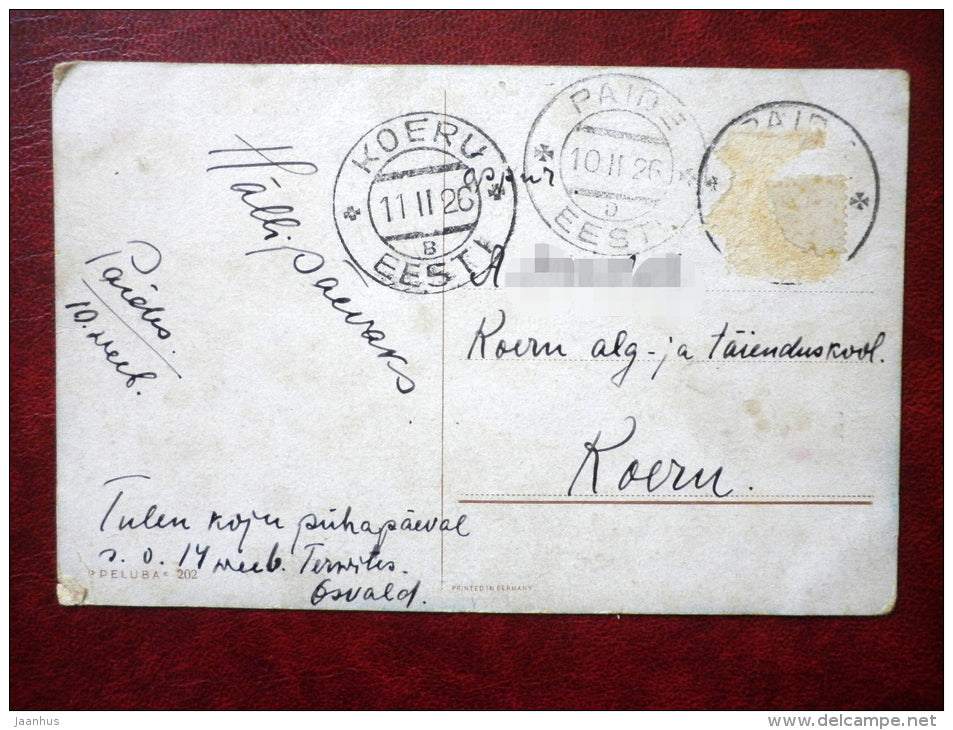 KOERU
11 II 26
B
EESTI
PAIDE
10 II 26
EESTI
PAID
Hälli päevaks
Paides.
10. weeb.
õppur
A
Koeru alg- ja täienduskool.
Koeru.
Tulen koju pühapäeval
s. o. 14 weeb. Terwites.
Osvald.
PELUBA 202
PRINTED IN GERMANY
Jaanhus
www.delcampe.net